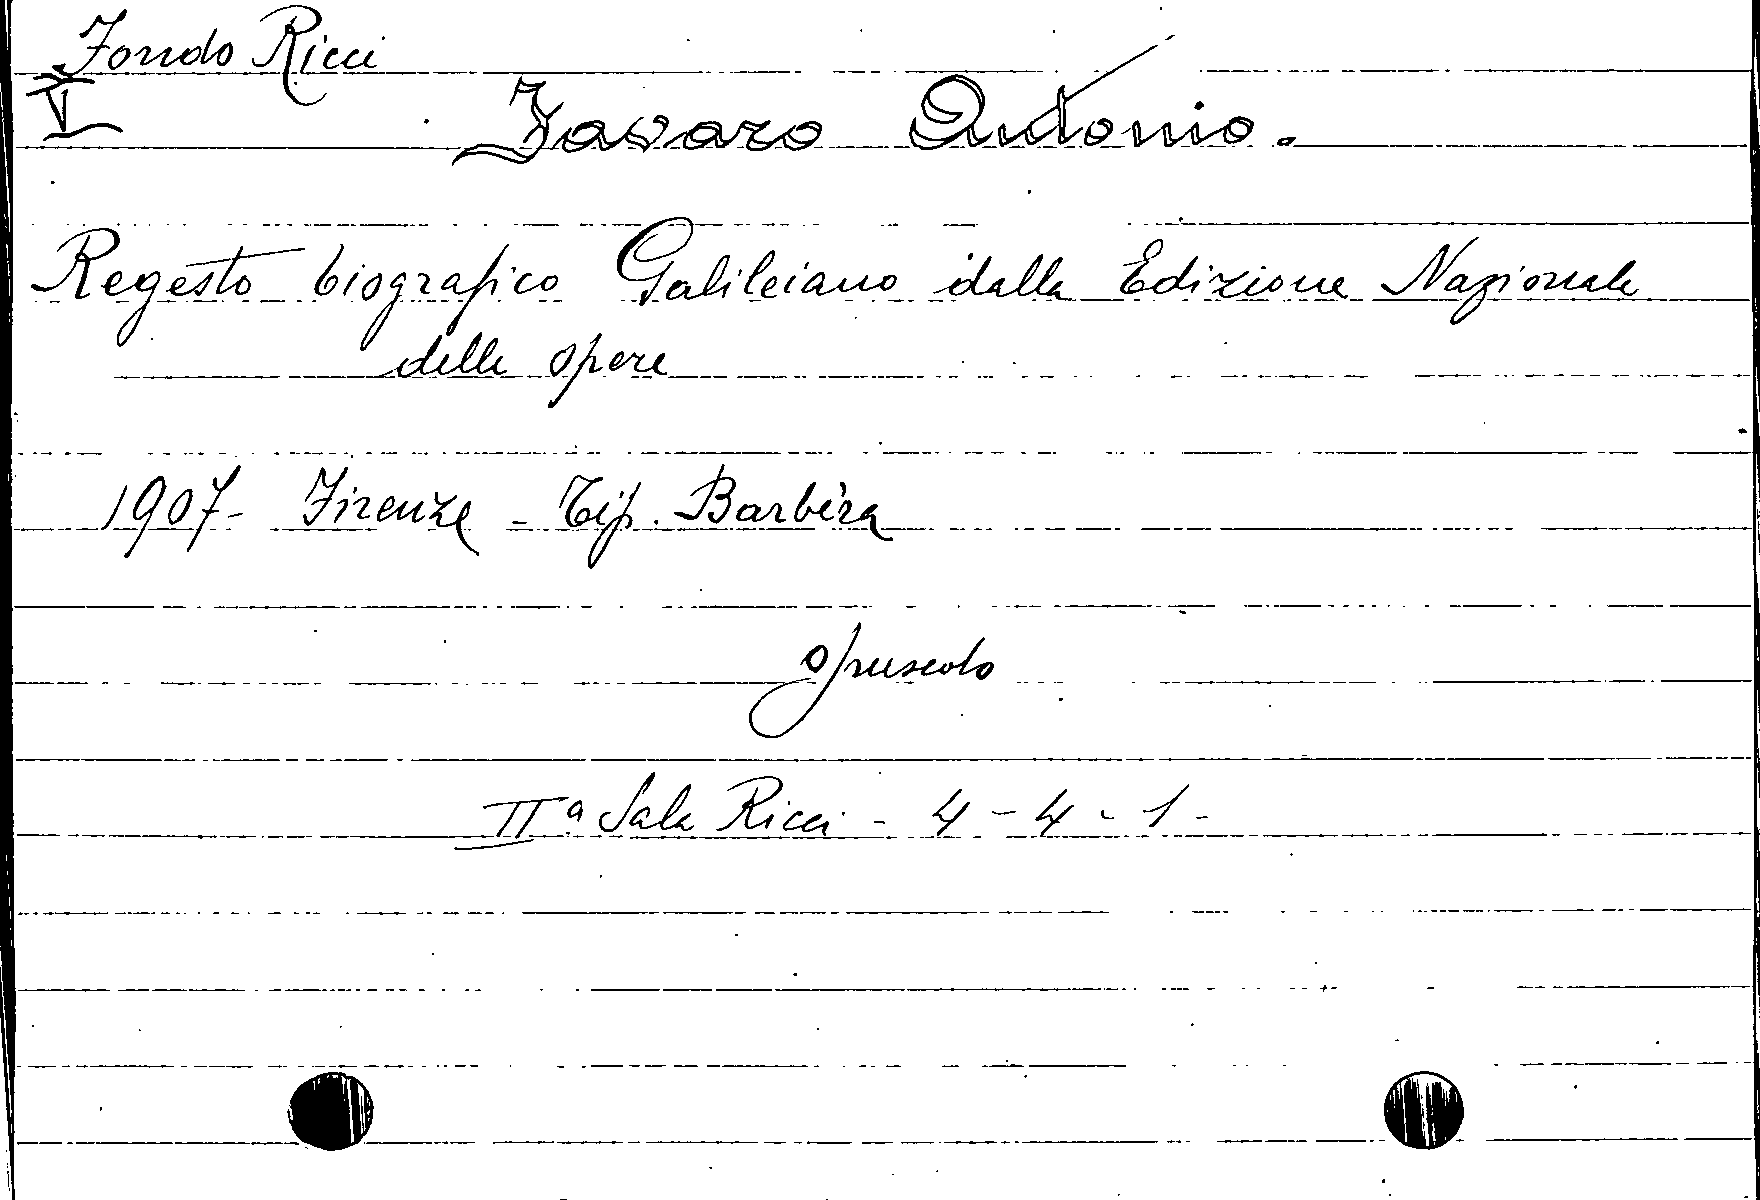 Fondo Ricci
V
Favaro Antonio.
Regesto biografico Galileiano dalla Edizione Nazionale
delle opere
1907- Firenze - Tip. Barbèra
opuscolo
IIa Sala Ricci - 4 - 4 - 1 -